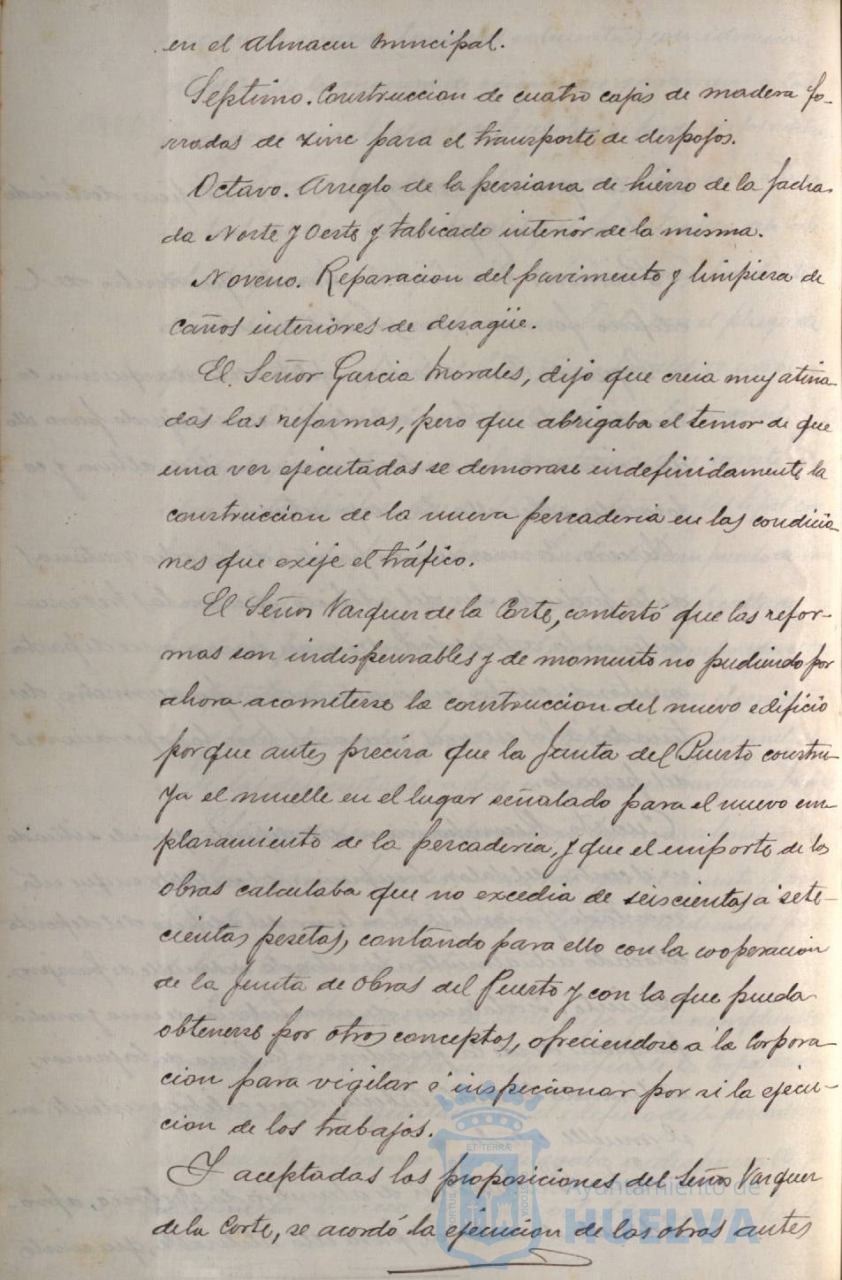 en el Almacen Municipal.
Septimo. Construccion de cuatro cajas de madera fo-
rradas de zinc para el transporte de despojos.
Octavo. Arreglo de la persiana de hierro de la facha-
da Norte y Oeste y tabicado interior de la misma.
Noveno. Reparacion del pavimento y limpieza de
caños interiores de desagüe.
El Señor Garcia Morales, dijo que creia muy atina-
das las reformas, pero que abrigaba el temor de que
una vez ejecutadas se demorase indefinidamente la
construccion de la nueva pescaderia en las condicio-
nes que exije el tráfico.
El Señor Vazquez de la Corte, contestó que las refor-
mas son indispensables y de momento no pudiendo por
ahora acometerse la construccion del nuevo edificio
porque antes precisa que la Junta del Puerto constru-
ya el muelle en el lugar señalado para el nuevo em-
plazamiento de la pescaderia, y que el importe de las
obras calculaba que no excedia de seiscientas á sete-
cientas pesetas, contando para ello con la cooperacion
de la Junta de Obras del Puerto y con la que pueda
obtenerse por otros conceptos, ofreciendose á la Corpora-
cion para vigilar é inspeccionar por si la ejecu-
cion de los trabajos.
Y aceptadas las proposiciones del Señor Vazquez
de la Corte, se acordó la ejecucion de las obras antes
ET TERRÆ
PORTUS
CUSTODIA
Ayuntamiento de
HUELVA